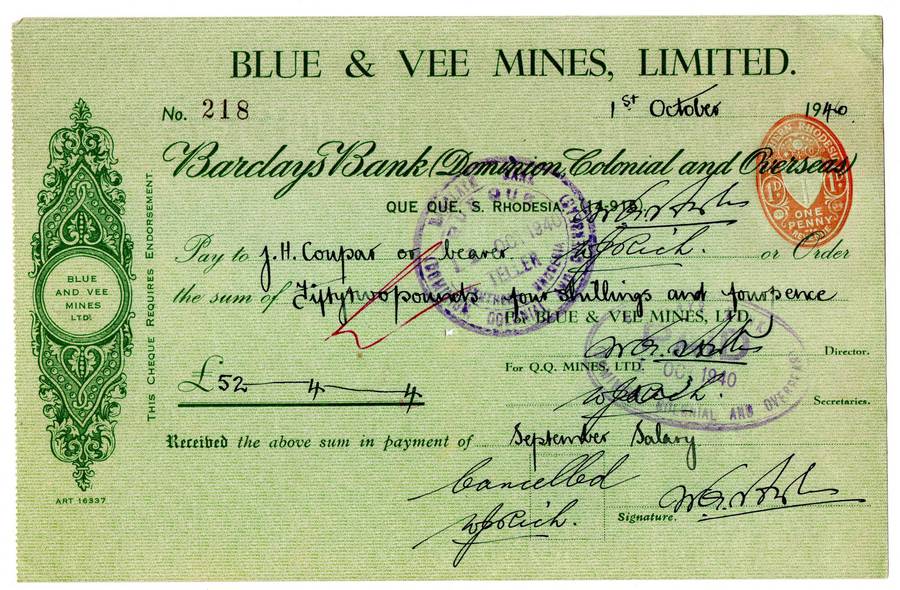 BLUE & VEE MINES, LIMITED.
No. 218
1st October 1940.
Barclays Bank (Dominion, Colonial and Overseas)
QUE QUE, S. RHODESIA. (14.918)
Pay to J.H. Coupar or bearer or Order
the sum of Fiftytwo pounds four Shillings and fourpence
For BLUE & VEE MINES, LTD.
Director.
£52 — 4 — 4
For Q.Q. MINES, LTD.
Secretaries.
Received the above sum in payment of September Salary
Cancelled
Signature.
THIS CHEQUE REQUIRES ENDORSEMENT
BLUE
AND VEE
MINES
LTD.
ART 16337
RHODESIA
1D 1D
ONE
PENNY
OCT 1940
TELLER
OCT 1940
COLONIAL AND OVERSEAS